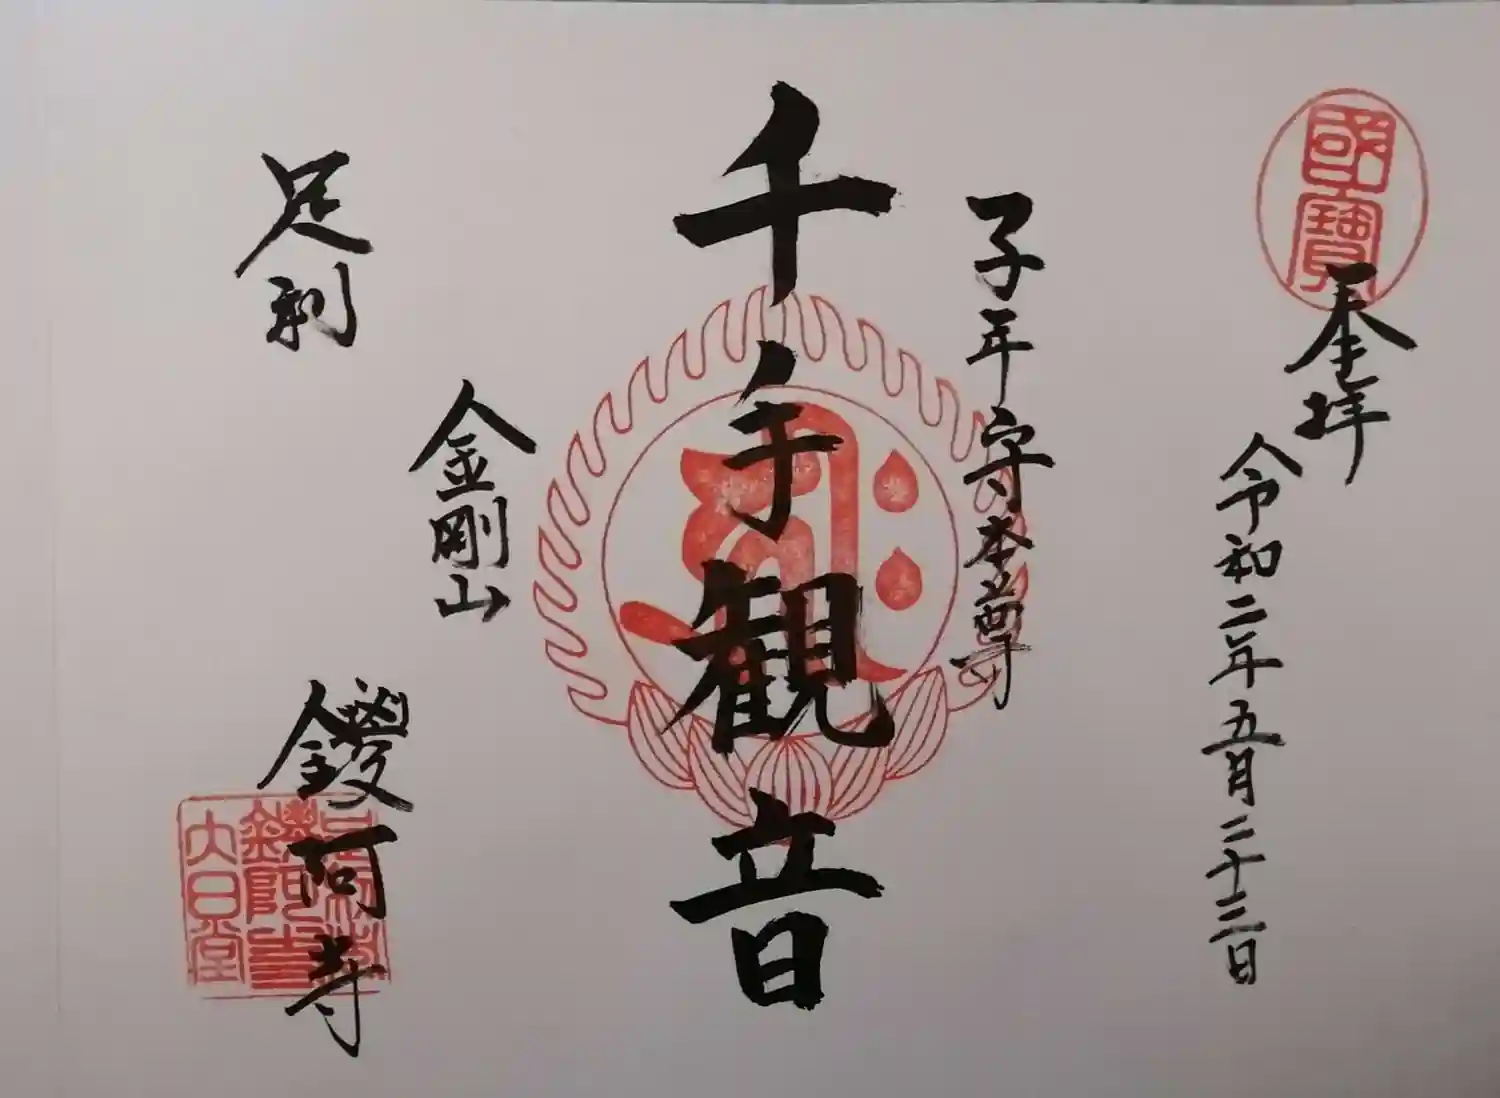 國寶
奉拝
令和二年五月二十三日
子年守本尊
千手観音
金剛山
足利
鑁阿寺
鑁阿寺
大日堂